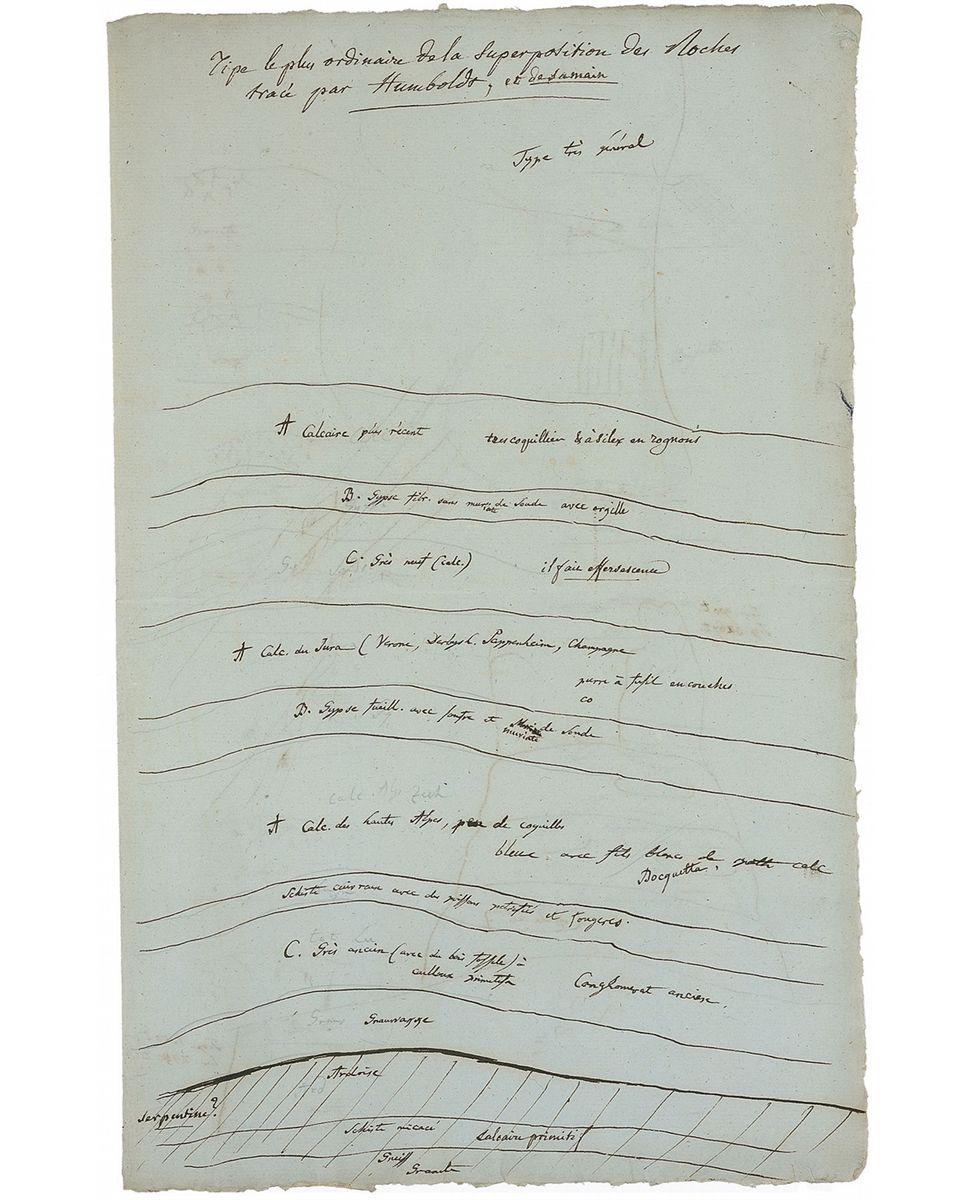 Tipe le plus ordinaire de la Superposition des Roches
tracé par Humboldt, et de sa main
Type très général
A Calcaire plus récent très coquillier & à Silex en rognons
B. Gypse fibr. sans muriate de Soude avec argille
C. Grès neuf (calc.) il fait effervescence
A Calc. du Jura (Verone, Derbysh. Pappenheim, Champagne
pierre à fusil en couches
co
B. Gypse fueill. avec soufre et muriate de Soude
calc. Alp. Zech
A Calc. des hautes Alpes, peu de coquilles
bleue, avec fils blancs de calc
Bocquetta,
Schiste cuivreux avec des poissons petrifiés et fougeres.
C. Grès ancien (avec du bois fossile) à
cailloux primitifs Conglomerat anciene,
Grauwagge
Ardoise
Serpentine?
Schiste micacé Calcaire primitif
Gneiss
Granite